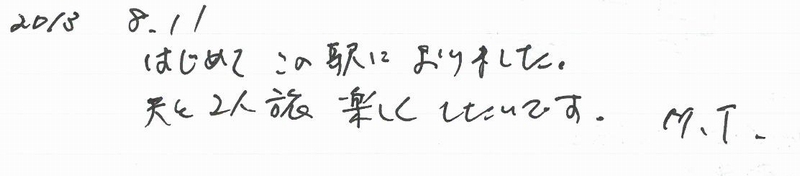 2013 8.11
はじめて この駅に おりました。
夫と2人旅 楽しく したいです。 M.T.